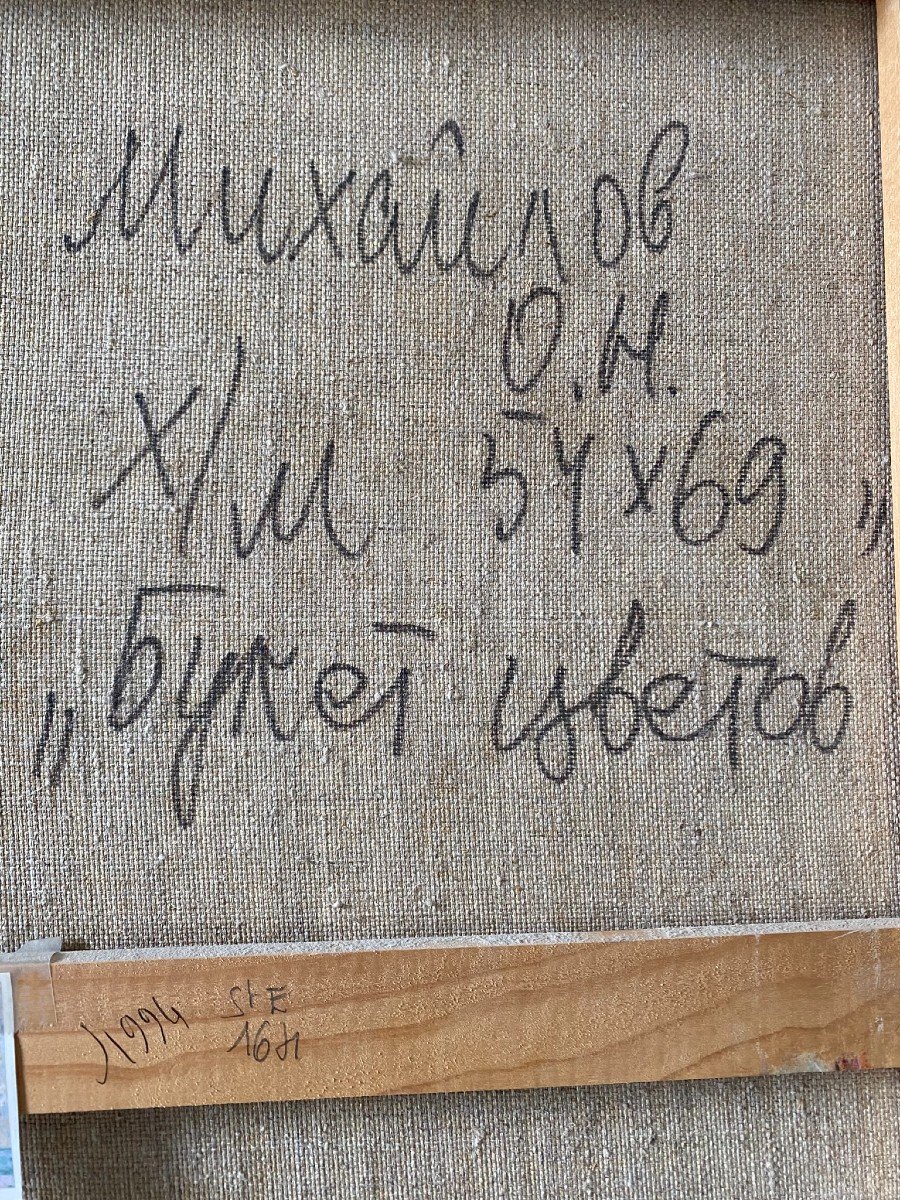 Михайлов
О.Н.
х/м 54х69
„Букет цветов”
1994